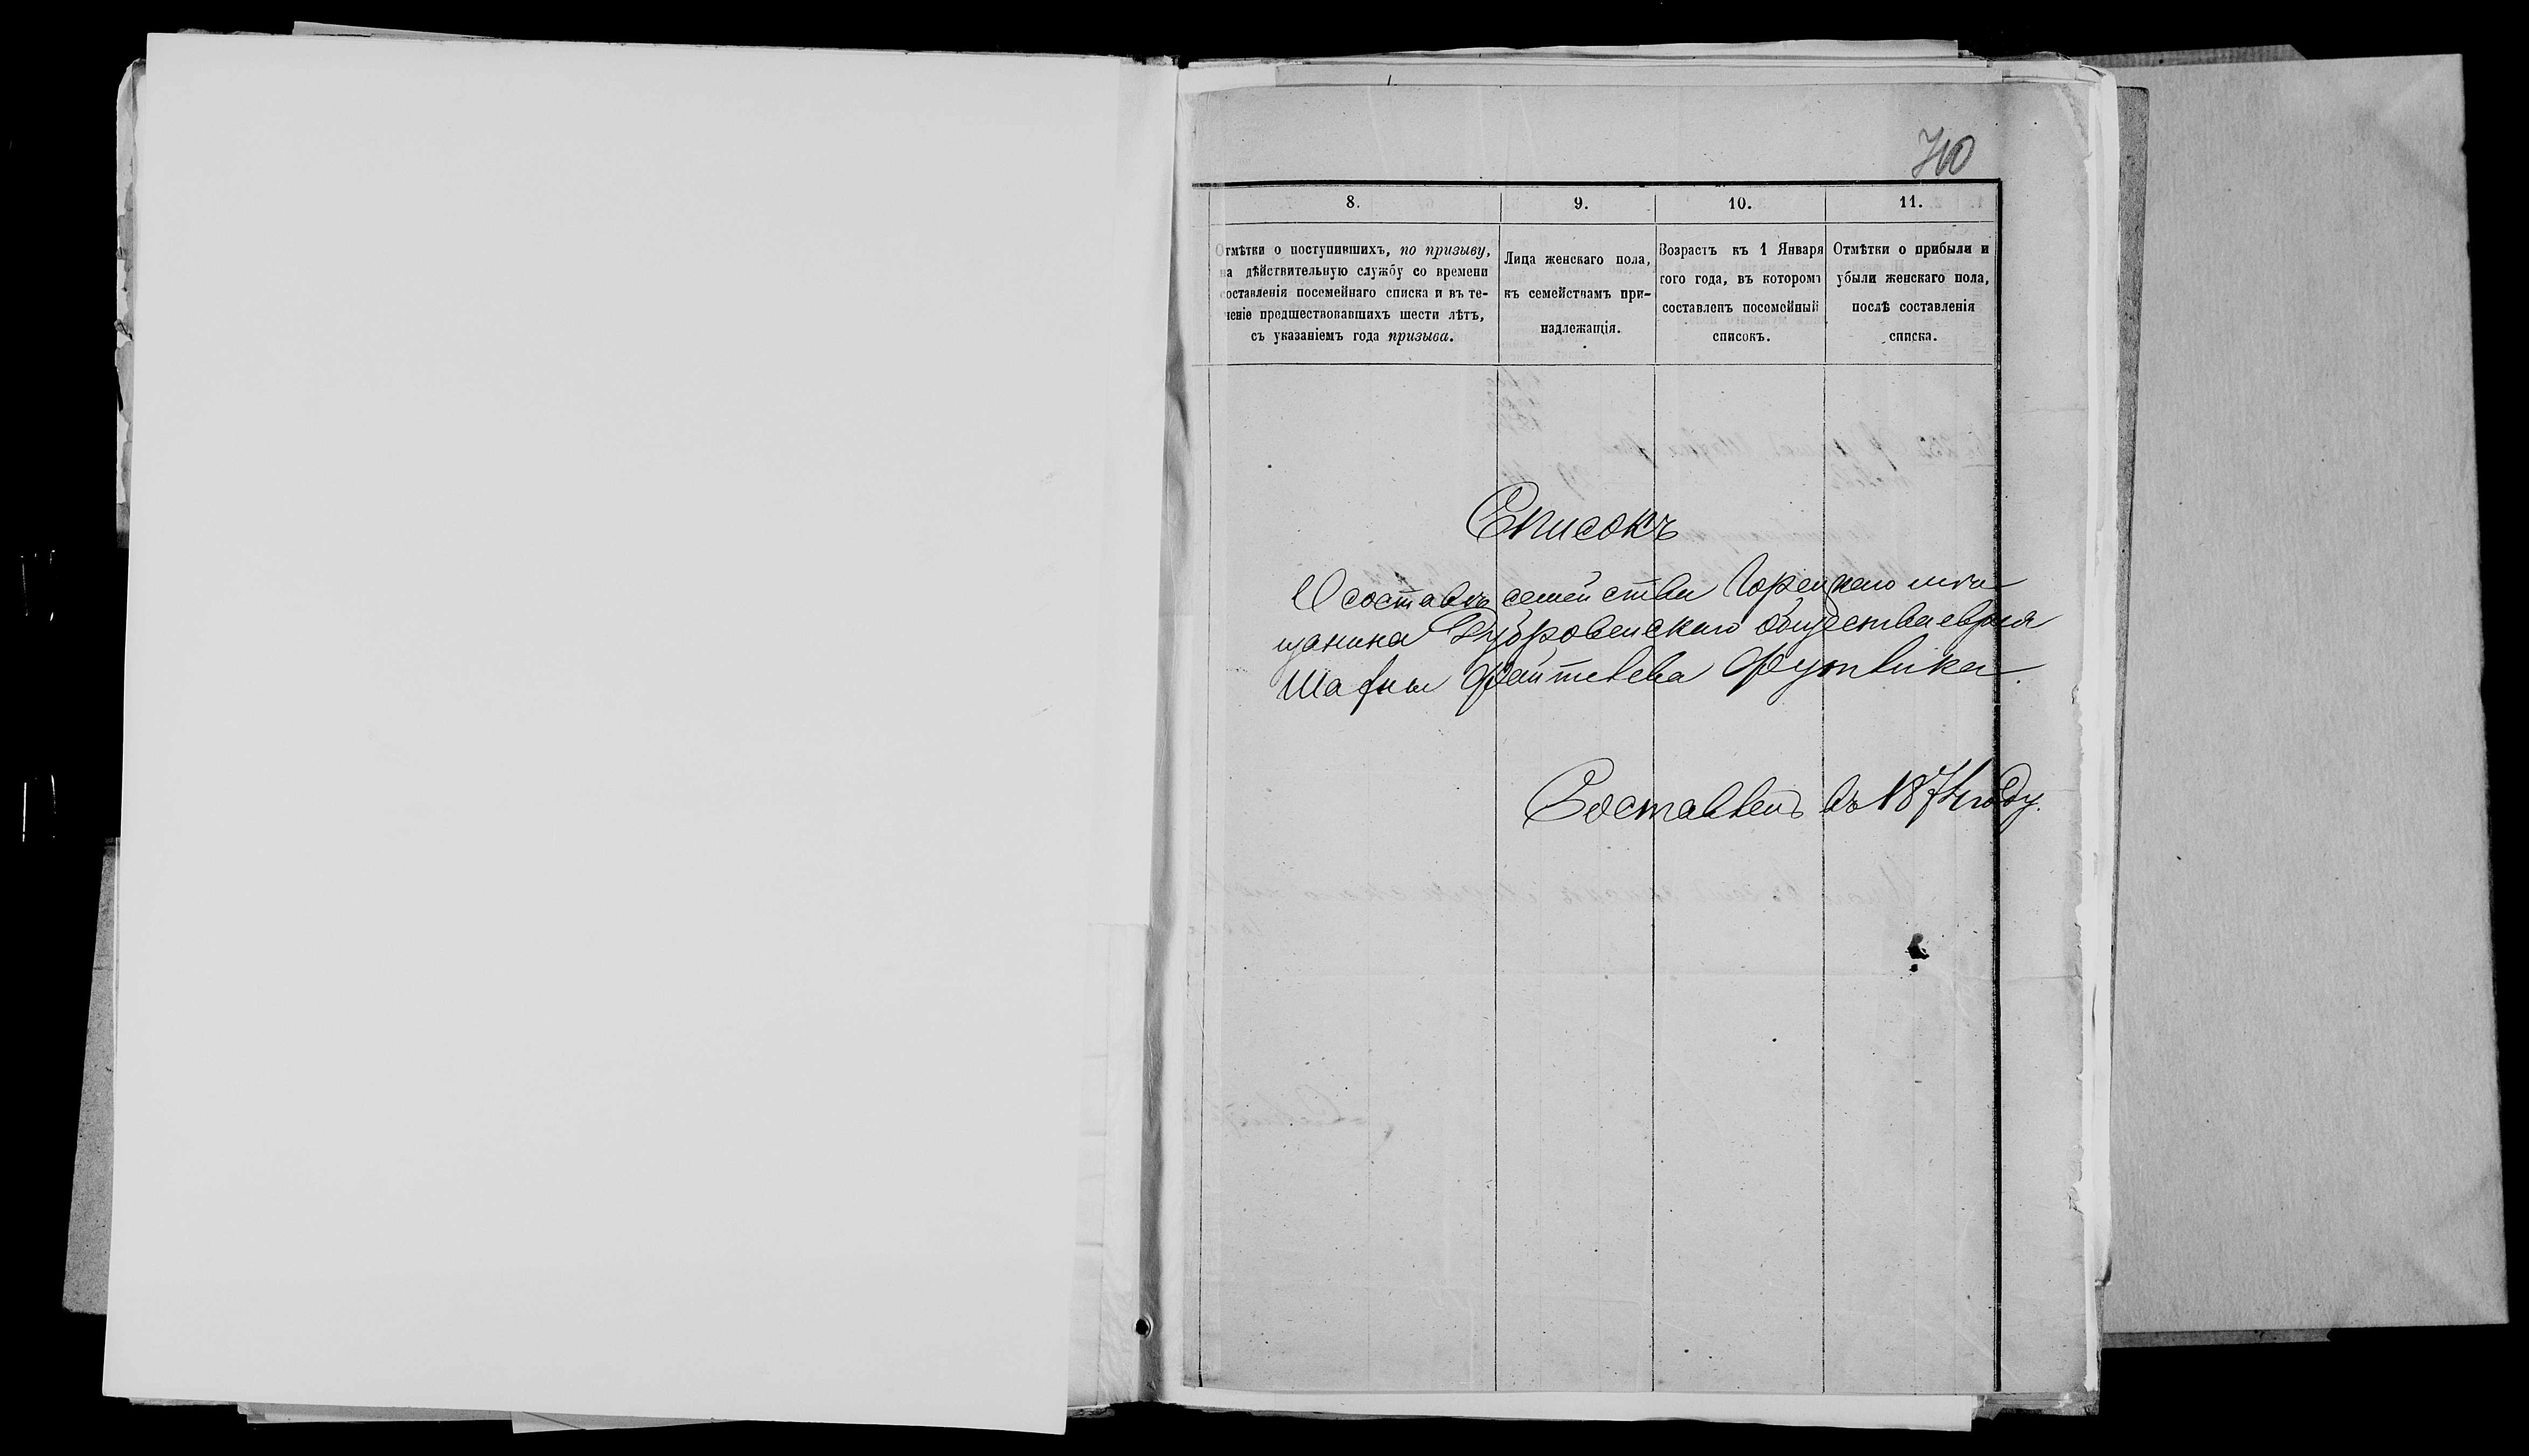 710
8.
9.
10.
11.
Отмѣтки о поступившихъ, по призыву,
на дѣйствительную службу со времени
составленія посемейнаго списка и въ те-
ченіе предшествовавшихъ шести лѣтъ,
съ указаніемъ года призыва.
Лица женскаго пола,
къ семействамъ при-
надлежащія.
Возрастъ къ 1 Января
того года, въ которомъ
составленъ посемейный
списокъ.
Отмѣтки о прибыли и
убыли женскаго пола,
послѣ составленія
списка.
Списокъ
О составѣ семейства Горецкаго мѣ
щанина Дубровенскаго общества еврея
Файтелева
Составленъ въ 1874 году.